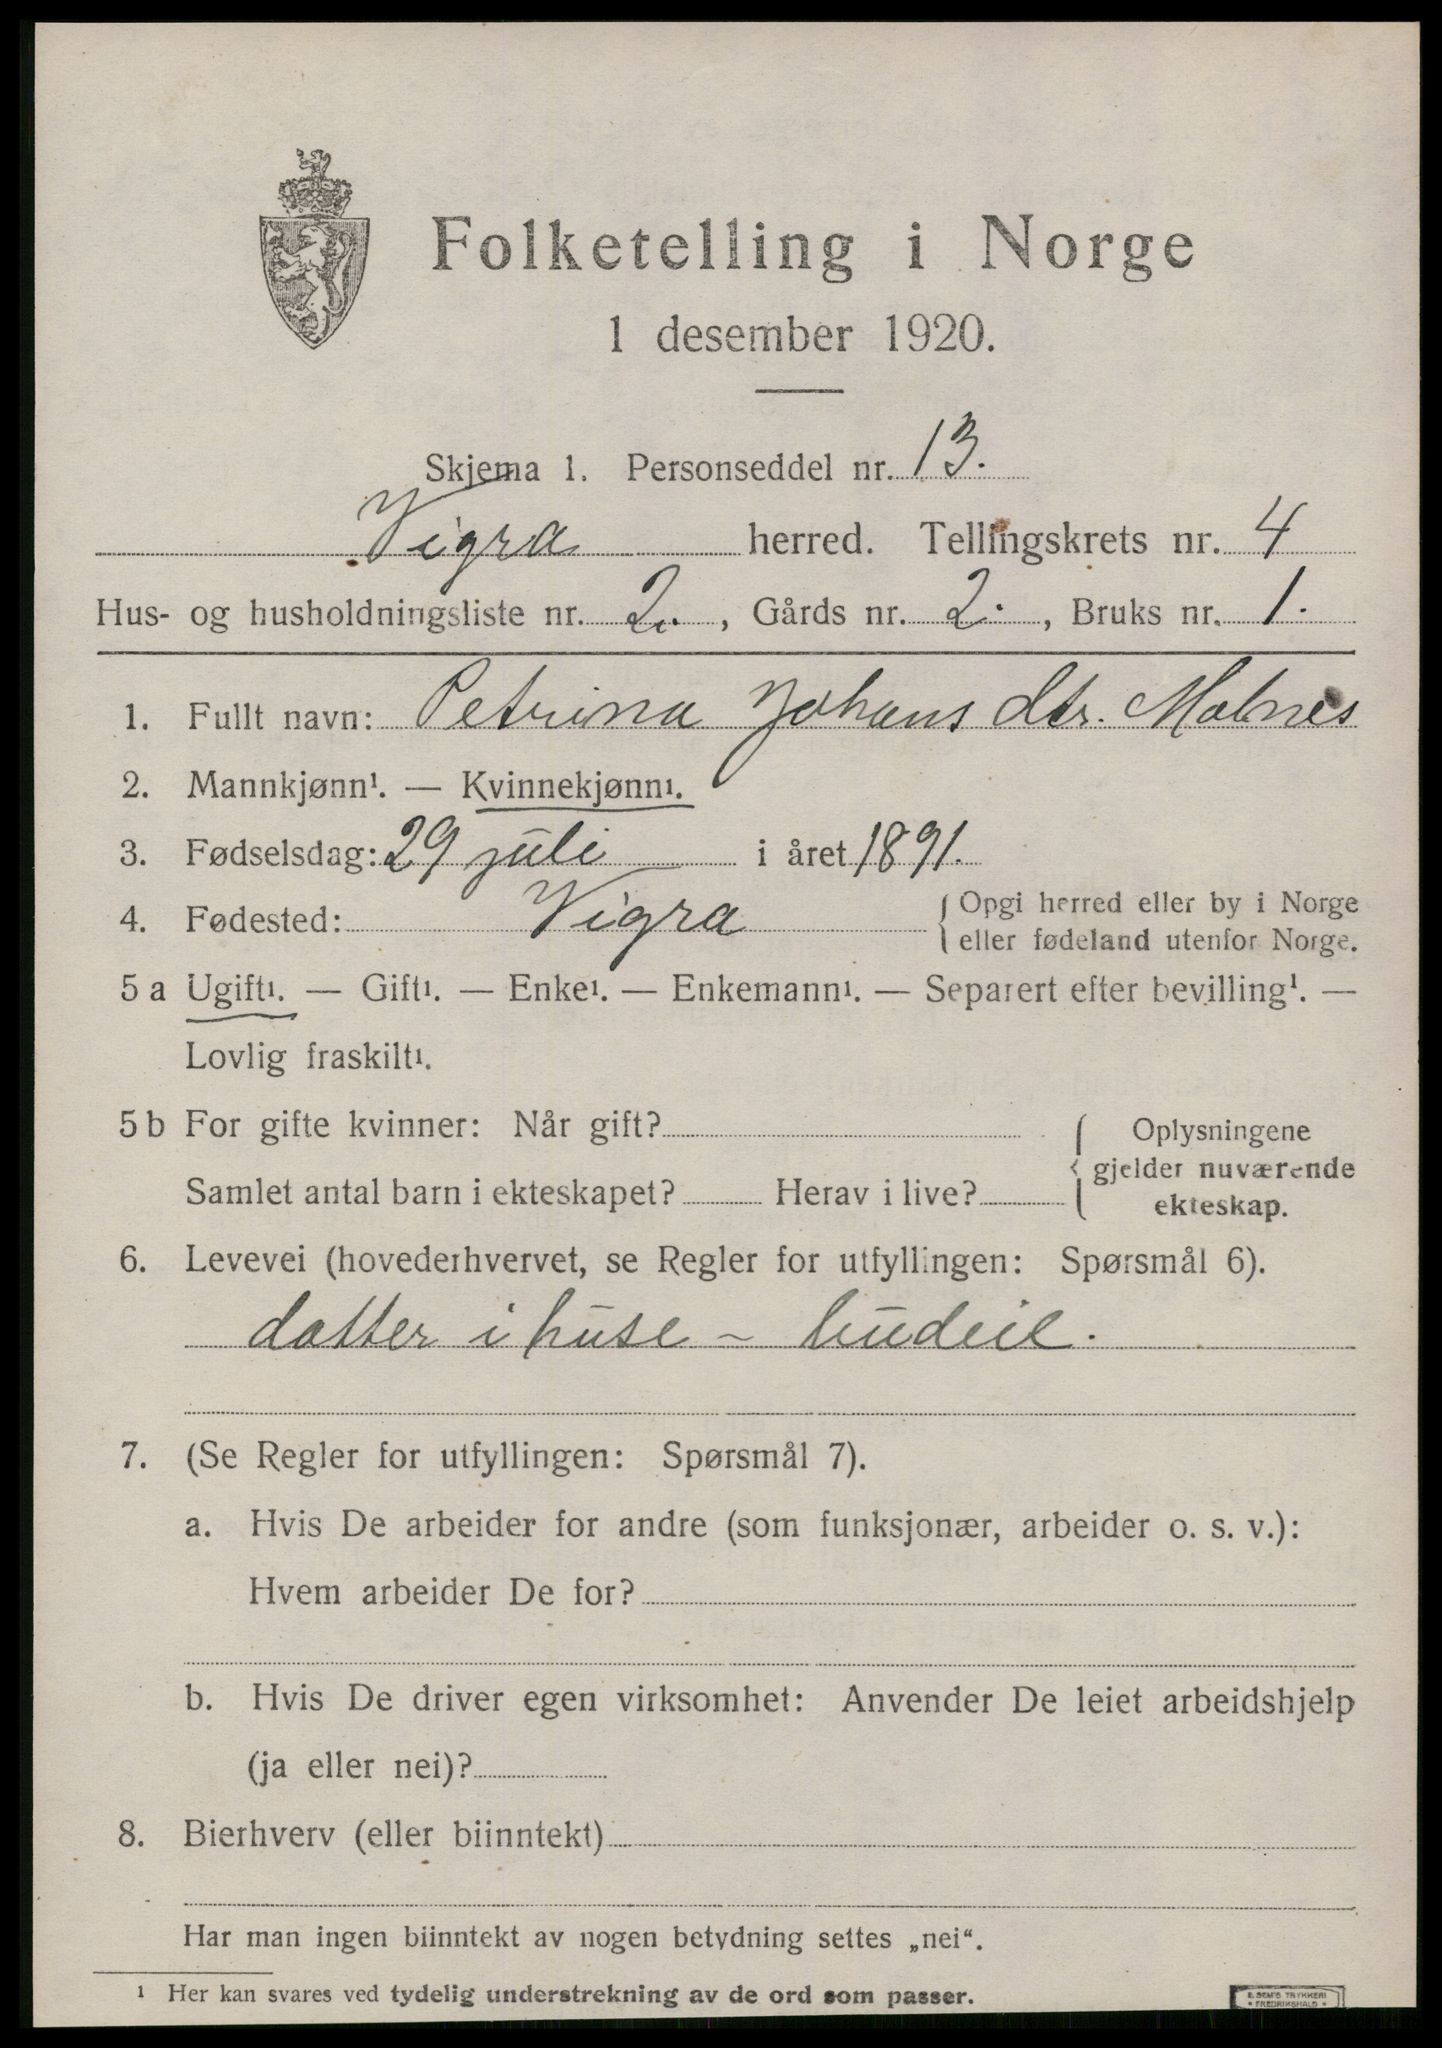 Folketelling i Norge
1 desember 1920.
Skjema 1. Personseddel nr. 13.
Vigra herred. Tellingskrets nr. 4
Hus- og husholdningsliste nr. 2., Gårds nr. 2., Bruks nr. 1.
1. Fullt navn: Petrina Johans dtr. Molnes
2. Mannkjønn¹. — Kvinnekjønn¹.
3. Fødselsdag: 29 juli i året 1891.
4. Fødested: Vigra { Opgi herred eller by i Norge
eller fødeland utenfor Norge.
5 a Ugift¹. — Gift¹. — Enke¹. — Enkemann¹. — Separert efter bevilling¹. —
Lovlig fraskilt¹.
5 b For gifte kvinner: Når gift? { Oplysningene
gjelder nuværende
Samlet antal barn i ekteskapet? Herav i live?
ekteskap.
6. Levevei (hovederhvervet, se Regler for utfyllingen: Spørsmål 6).
datter i huse - budeie.
7. (Se Regler for utfyllingen: Spørsmål 7).
a. Hvis De arbeider for andre (som funksjonær, arbeider o. s. v.):
Hvem arbeider De for?
b. Hvis De driver egen virksomhet: Anvender De leiet arbeidshjelp
(ja eller nei)?
8. Bierhverv (eller biinntekt)
Har man ingen biinntekt av nogen betydning settes „nei“.
¹ Her kan svares ved tydelig understrekning av de ord som passer.
E. SEM'S TRYKKERI
* FREDRIKSHALD *